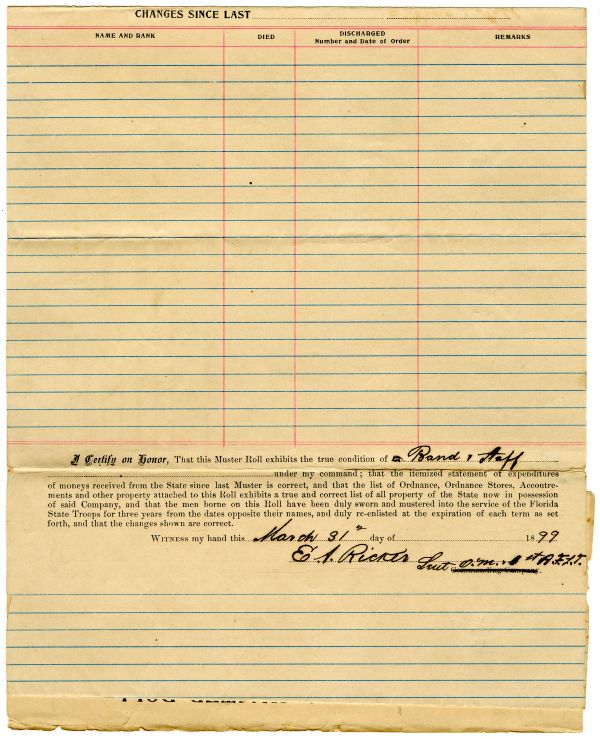 CHANGES SINCE LAST
NAME AND RANK DIED DISCHARGED Number and Date of Order REMARKS
I Certify on Honor, That this Muster Roll exhibits the true condition of Band & Staff
under my command; that the itemized statement of expenditures
of moneys received from the State since last Muster is correct, and that the list of Ordnance, Ordnance Stores, Accoutre-
ments and other property attached to this Roll exhibits a true and correct list of all property of the State now in possession
of said Company, and that the men borne on this Roll have been duly sworn and mustered into the service of the Florida
State Troops for three years from the dates opposite their names, and duly re-enlisted at the expiration of each term as set
forth, and that the changes shown are correct.
WITNESS my hand this March 31 day of 1899
E. A. Ricker Lieut